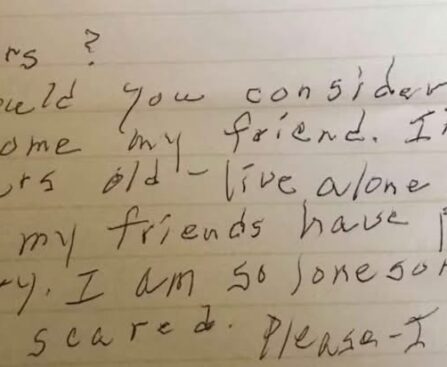 rs ?
uld you consider
ome my friend. I'
rs old - live alone
my friends have p
y. I am so loneso
scared. Please - I